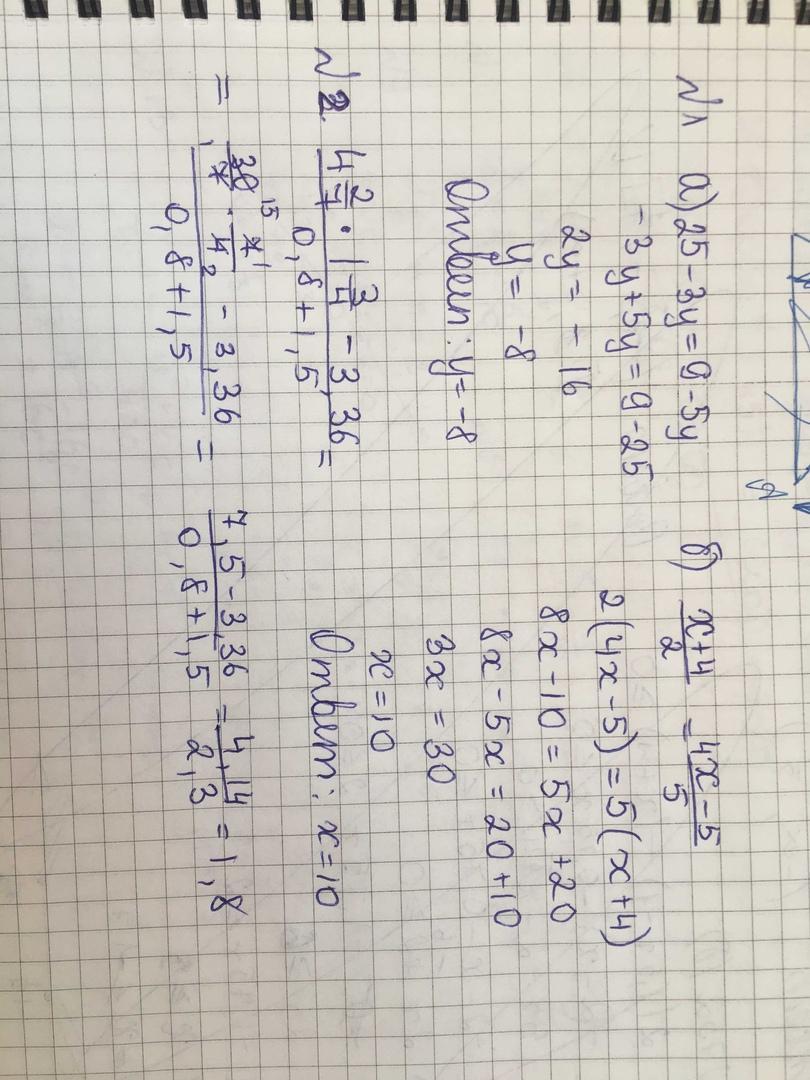 №1 а) 25-3y=9-5y
-3y+5y=9-25
2y=-16
y=-8
Ответ: y=-8
б) x+4/2 = 4x-5/5
2(4x-5)=5(x+4)
8x-10=5x+20
8x-5x=20+10
3x=30
x=10
Ответ: x=10
№2 4 2/7 · 1 3/4 - 3,36 / 0,8+1,5 =
= 30/7 · 7/4 - 3,36 / 0,8+1,5 = 7,5-3,36 / 0,8+1,5 = 4,14 / 2,3 = 1,8